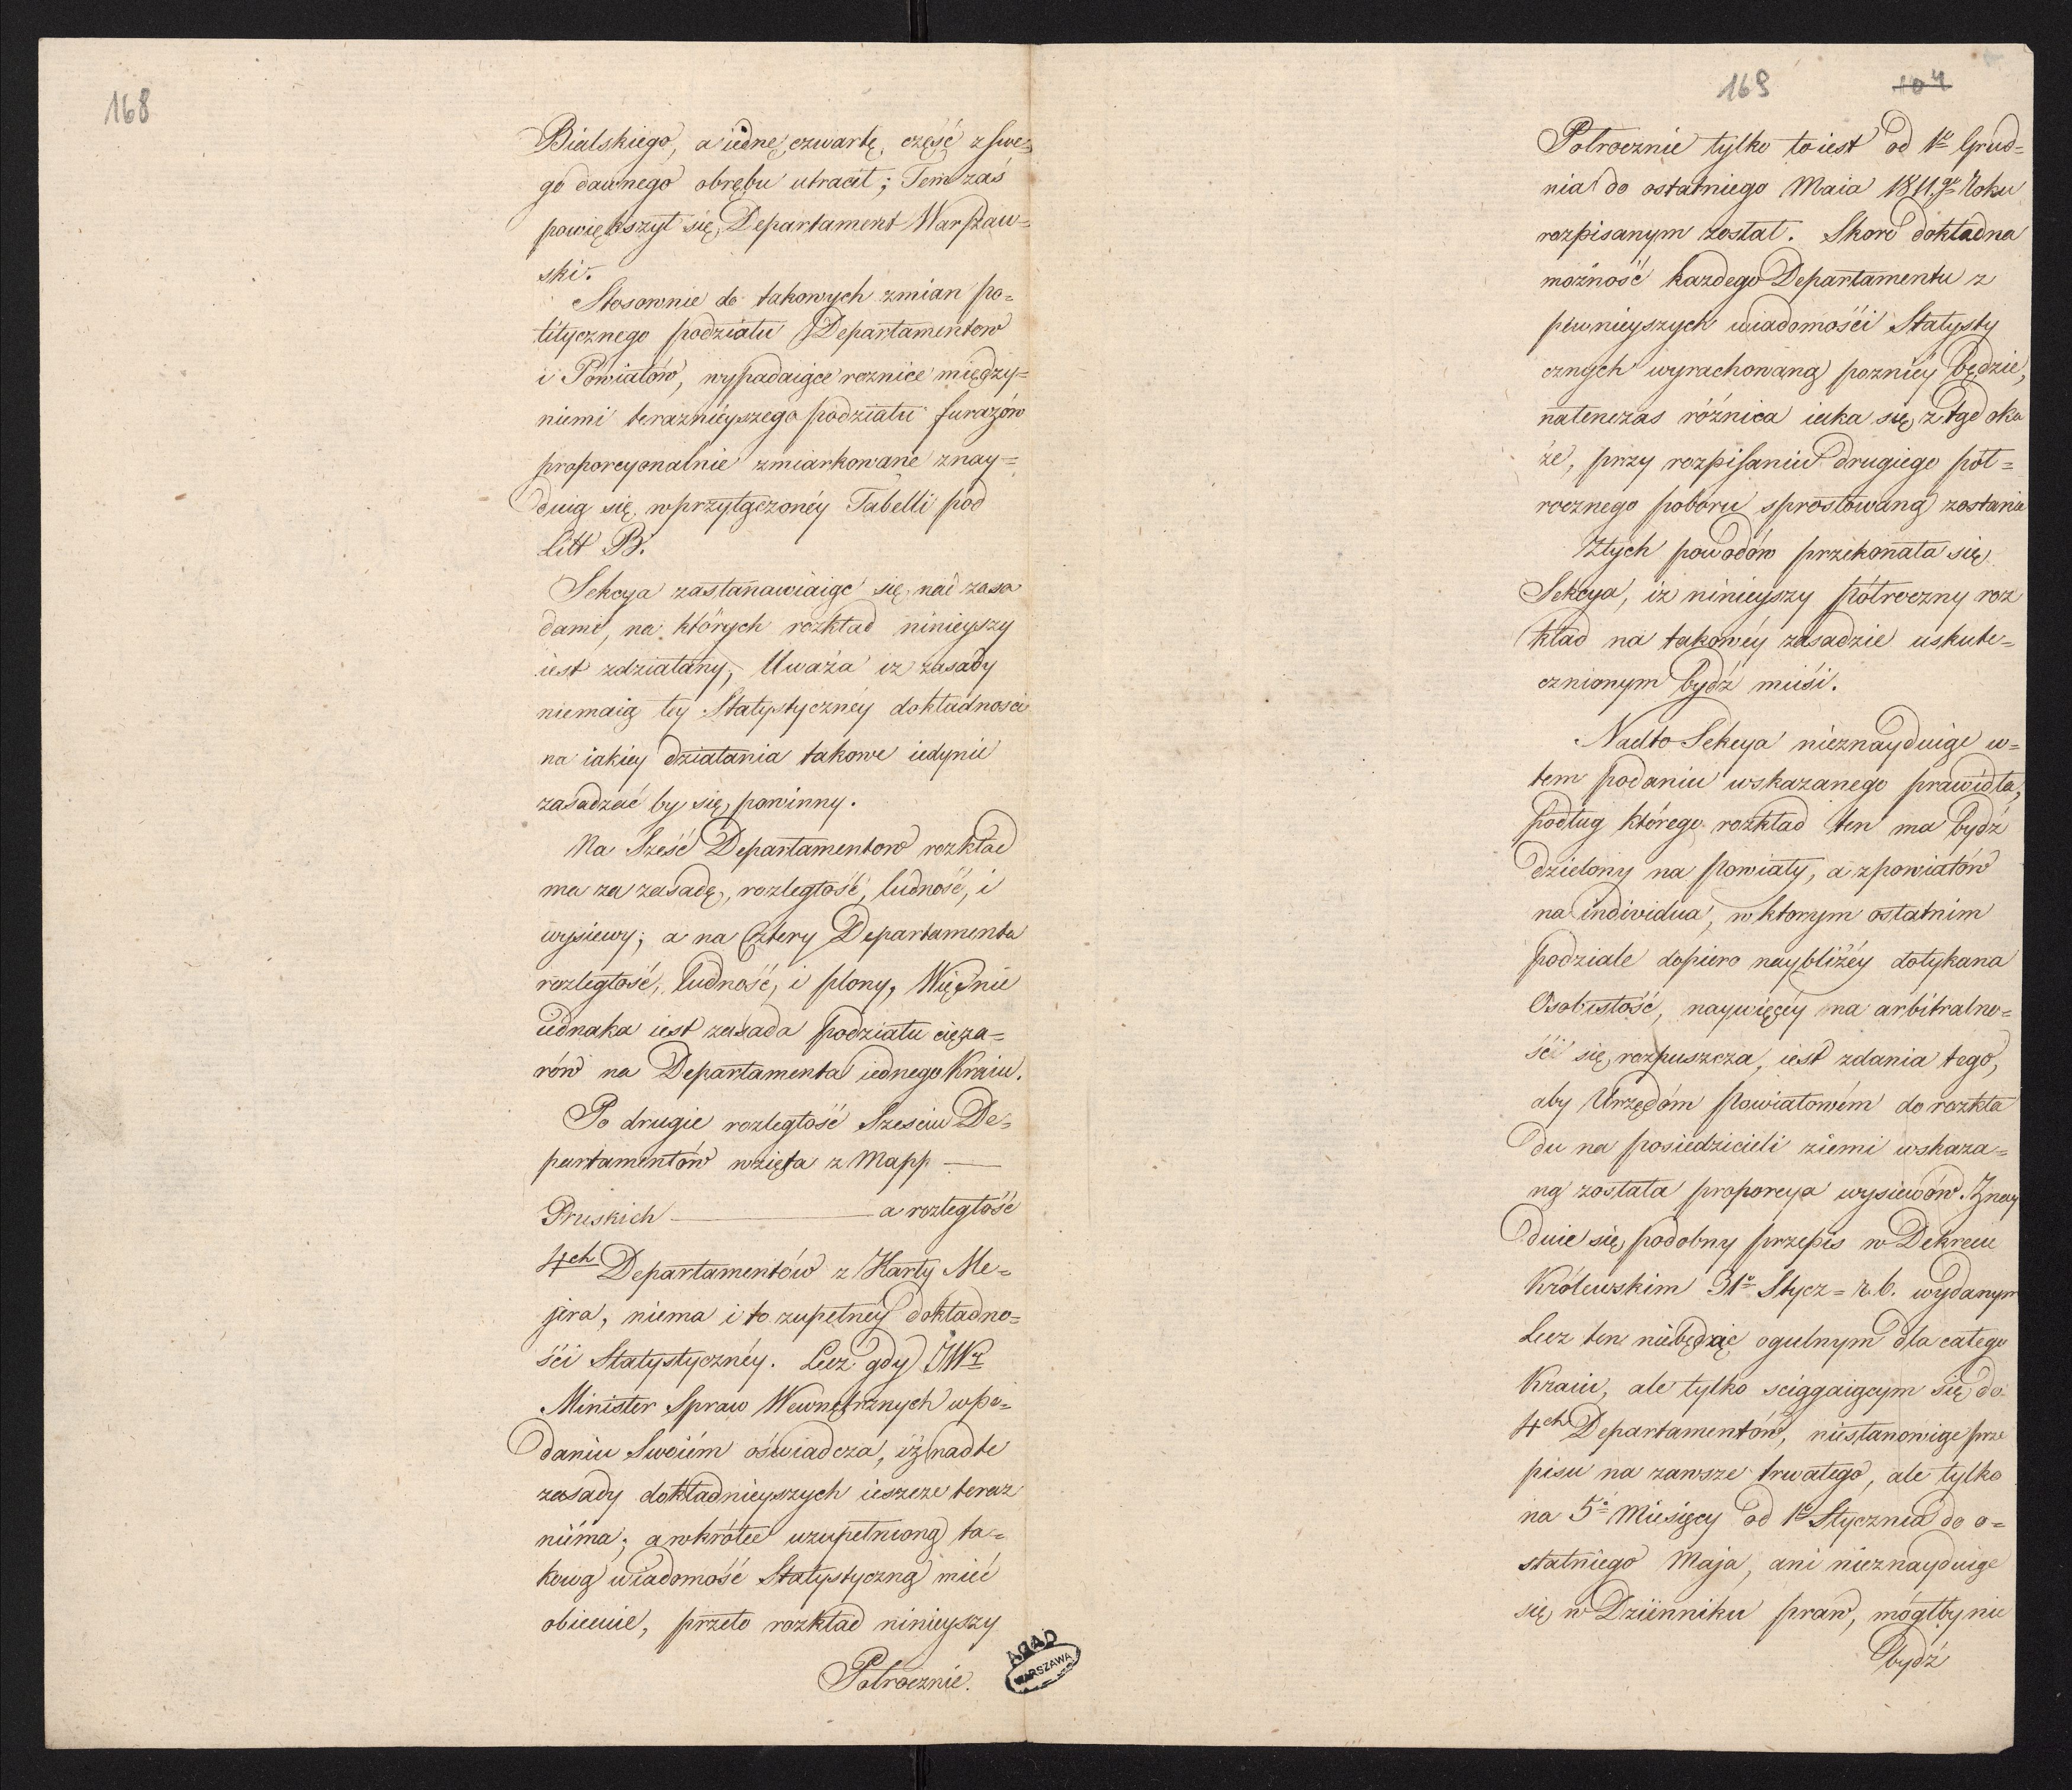 168
Bialskiego, a iednę czwartę część z swe=
go dawnego obrębu utracił; Tem zaś
powiększył się Departament Warszaw=
ski.
Stosownie do takowych zmian po=
litycznego podziału Departamentow
i Powiatów, wypadaiące roznice między=
niemi teraznieyszego podziału furażów
proporcyonalnie zmiarkowane znay=
duią się w przyłączonéy Tabelli pod
Litt B.
Sekcya zastanawiaiąc się nad zasa
dami, na których rozkład ninieyszy
iest zdziałany, Uważa iz zasady
niemaią tey Statystycznéy dokładności
na iakiey działania takowe iedynie
zasadzać by się powinny.
Na Sześć Departamentow rozkład
ma za zasadę, rozległość, ludność, i
wysiewy; a na Cztery Departamenta
rozległość, ludność, i plony, Więc nie
iednaka iest zasada podziału cięża=
rów na Departamenta iednego Kraiu.
Po drugie rozległość Szesciu De=
partamentów wzięta z Mapp
Pruskich a rozległość
4ch Departamentów z Karty Me=
jera, niema i to zupełnéy dokładno=
ści Statystycznéy. Lecz gdy JWy
Minister Spraw Wewnętrznych w po=
daniu Swoiém oświadcza, iż nad te
zasady dokładnieyszych ieszcze teraz
niéma; a wkrótce uzupełnioną ta=
kową wiadomość Statystyczną mieć
obiecuie, przeto rozkład ninieyszy
Półrocznie.
ADAD
WARSZAWA
169 104
Półrocznie tylko to iest od 1o Grud=
nia do ostatniego Maia 1811.go Roku
rozpisanym został. Skoro dokładna
możność kazdego Departamentu z
pewnieyszych wiadomości Statysty
cznych wyrachowaną pozniéy będzie,
natenczas różnica iaka się z tąd oka
że, przy rozpisaniu drugiego pół=
rocznego poboru sprostowaną zostanie
Z tych powodów przekonała się
Sekcya, iz ninieyszy półroczny roz
kład na takowéy zasadzie uskute=
cznionym bydź musi.
Nadto Sekcya nieznayduiąc w=
tem podaniu wskazanego prawidła,
podług którego rozkład ten ma bydź
dzielony na Powiaty, a z powiatów
na individua, w ktorym ostatnim
podziale dopiero naybliżéy dotykana
Osobistość, naywięcéy na arbitralno=
ści się rozpuszcza, iest zdania tego,
aby Urzędóm Powiatowém do rozkła
du na posiedzicieli ziemi wskaza=
ną została proporcya wysiewów. Znay
duie się podobny przepis w Dekrecie
Królewskim 31o Stycz= r. b. wydanym
Lecz ten niebędąc ogulnym dla całego
Kraiu, ale tylko sciągaiącym się do
4ch Departamentów, niestanowiąc prze
pisu na zawsze trwałego, ale tylko
na 5o Miesięcy od 1o Stycznia do o=
statniego Maja, ani nieznayduiąc
się w Dzienniku praw, mógłby nie
bydź